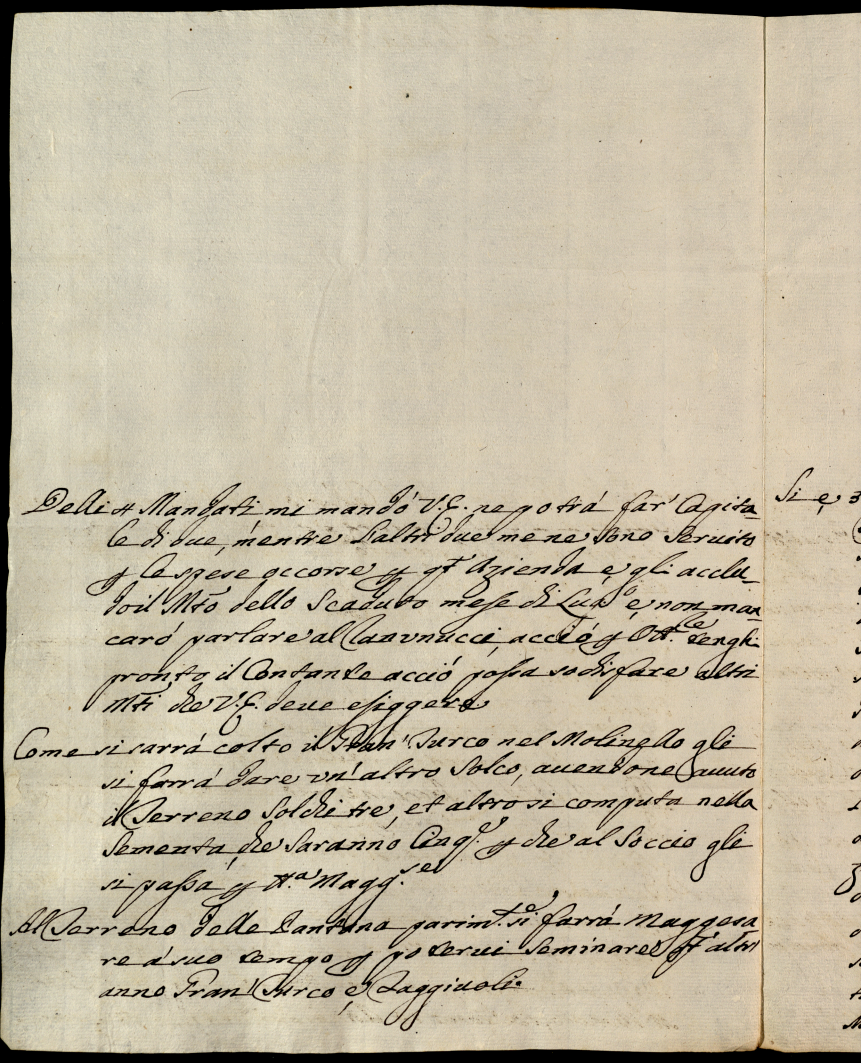 Delli 4 Mandati mi mandó V.E. ne potrá far' Capita-
le di due, mentre l'altri due me ne sono seruito
p le spese occorse p qt Azienda e, gli acclu-
do il Mto dello Scaduto mese di Lugo e, non man-
caró parlare al Canunucci, acció p Ottre tenghi
pronto il Contante acció possa sodisfare altri
Mti che V.E. deue esiggere
Come si sarrá colto il Gran' Turco nel Molinello gli
si farrá dare vn' altro Solco, auendone auuto
il Terreno Solchi tre, et altro si computa nella
Sementa, che saranno Cinq.e p che al Soccio gli
si passa p 4.a Magg.se
Al Terreno delle Pantana parim.to si farrá Maggesa
re á suo tempo p poterui seminare qt altr'
anno Gran' Turco e, Faggiuoli.
Si e,